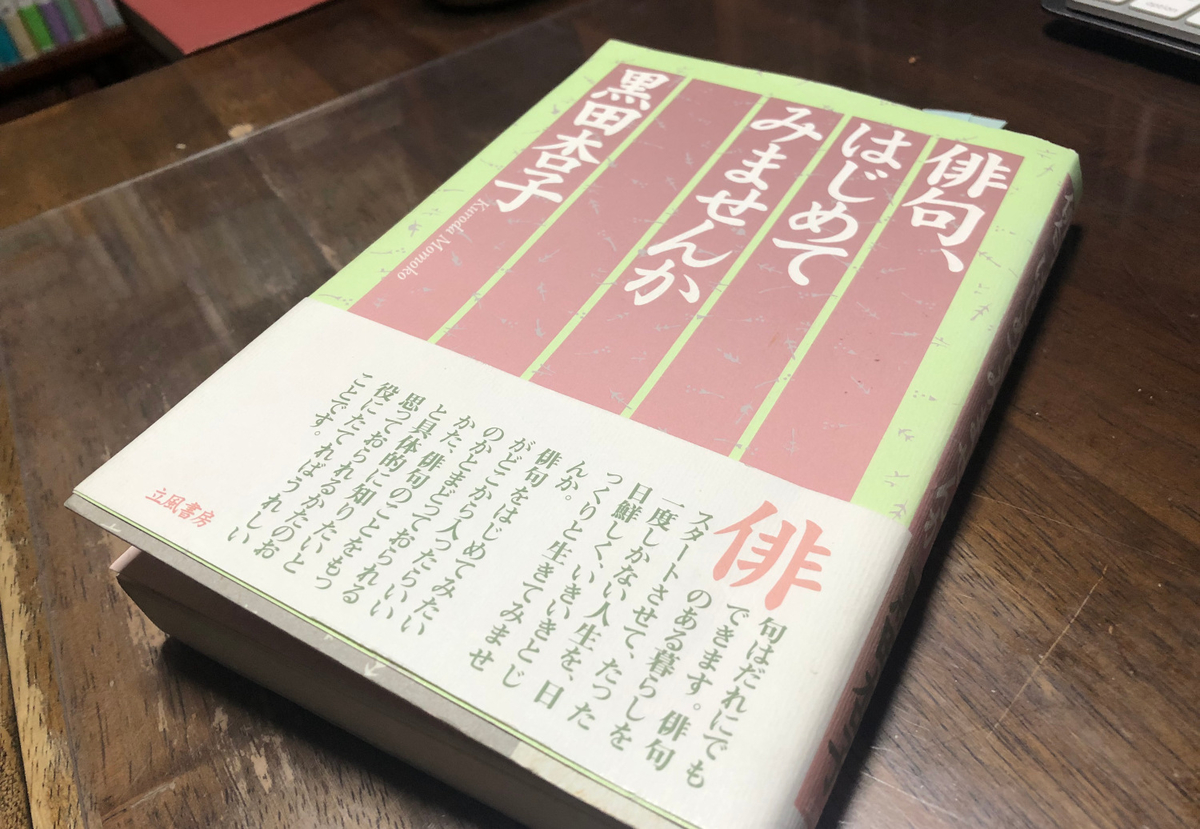 俳句、
はじめて
みませんか
黒田杏子
Kuroda Momoko
俳句はだれにでも
できます。俳句
のある暮らしを
スタートさせて、たった
一度しかない人生を、日
日鮮しく、いきいきとじ
っくりと生きてみませ
んか。
俳句をはじめてみたい
がどこから入ったらいい
のかとまどっておられる
かた、俳句のことをもっ
と具体的に知りたいと
思っておられるかたのお
役にたてればうれしい
ことです。
立風書房
option